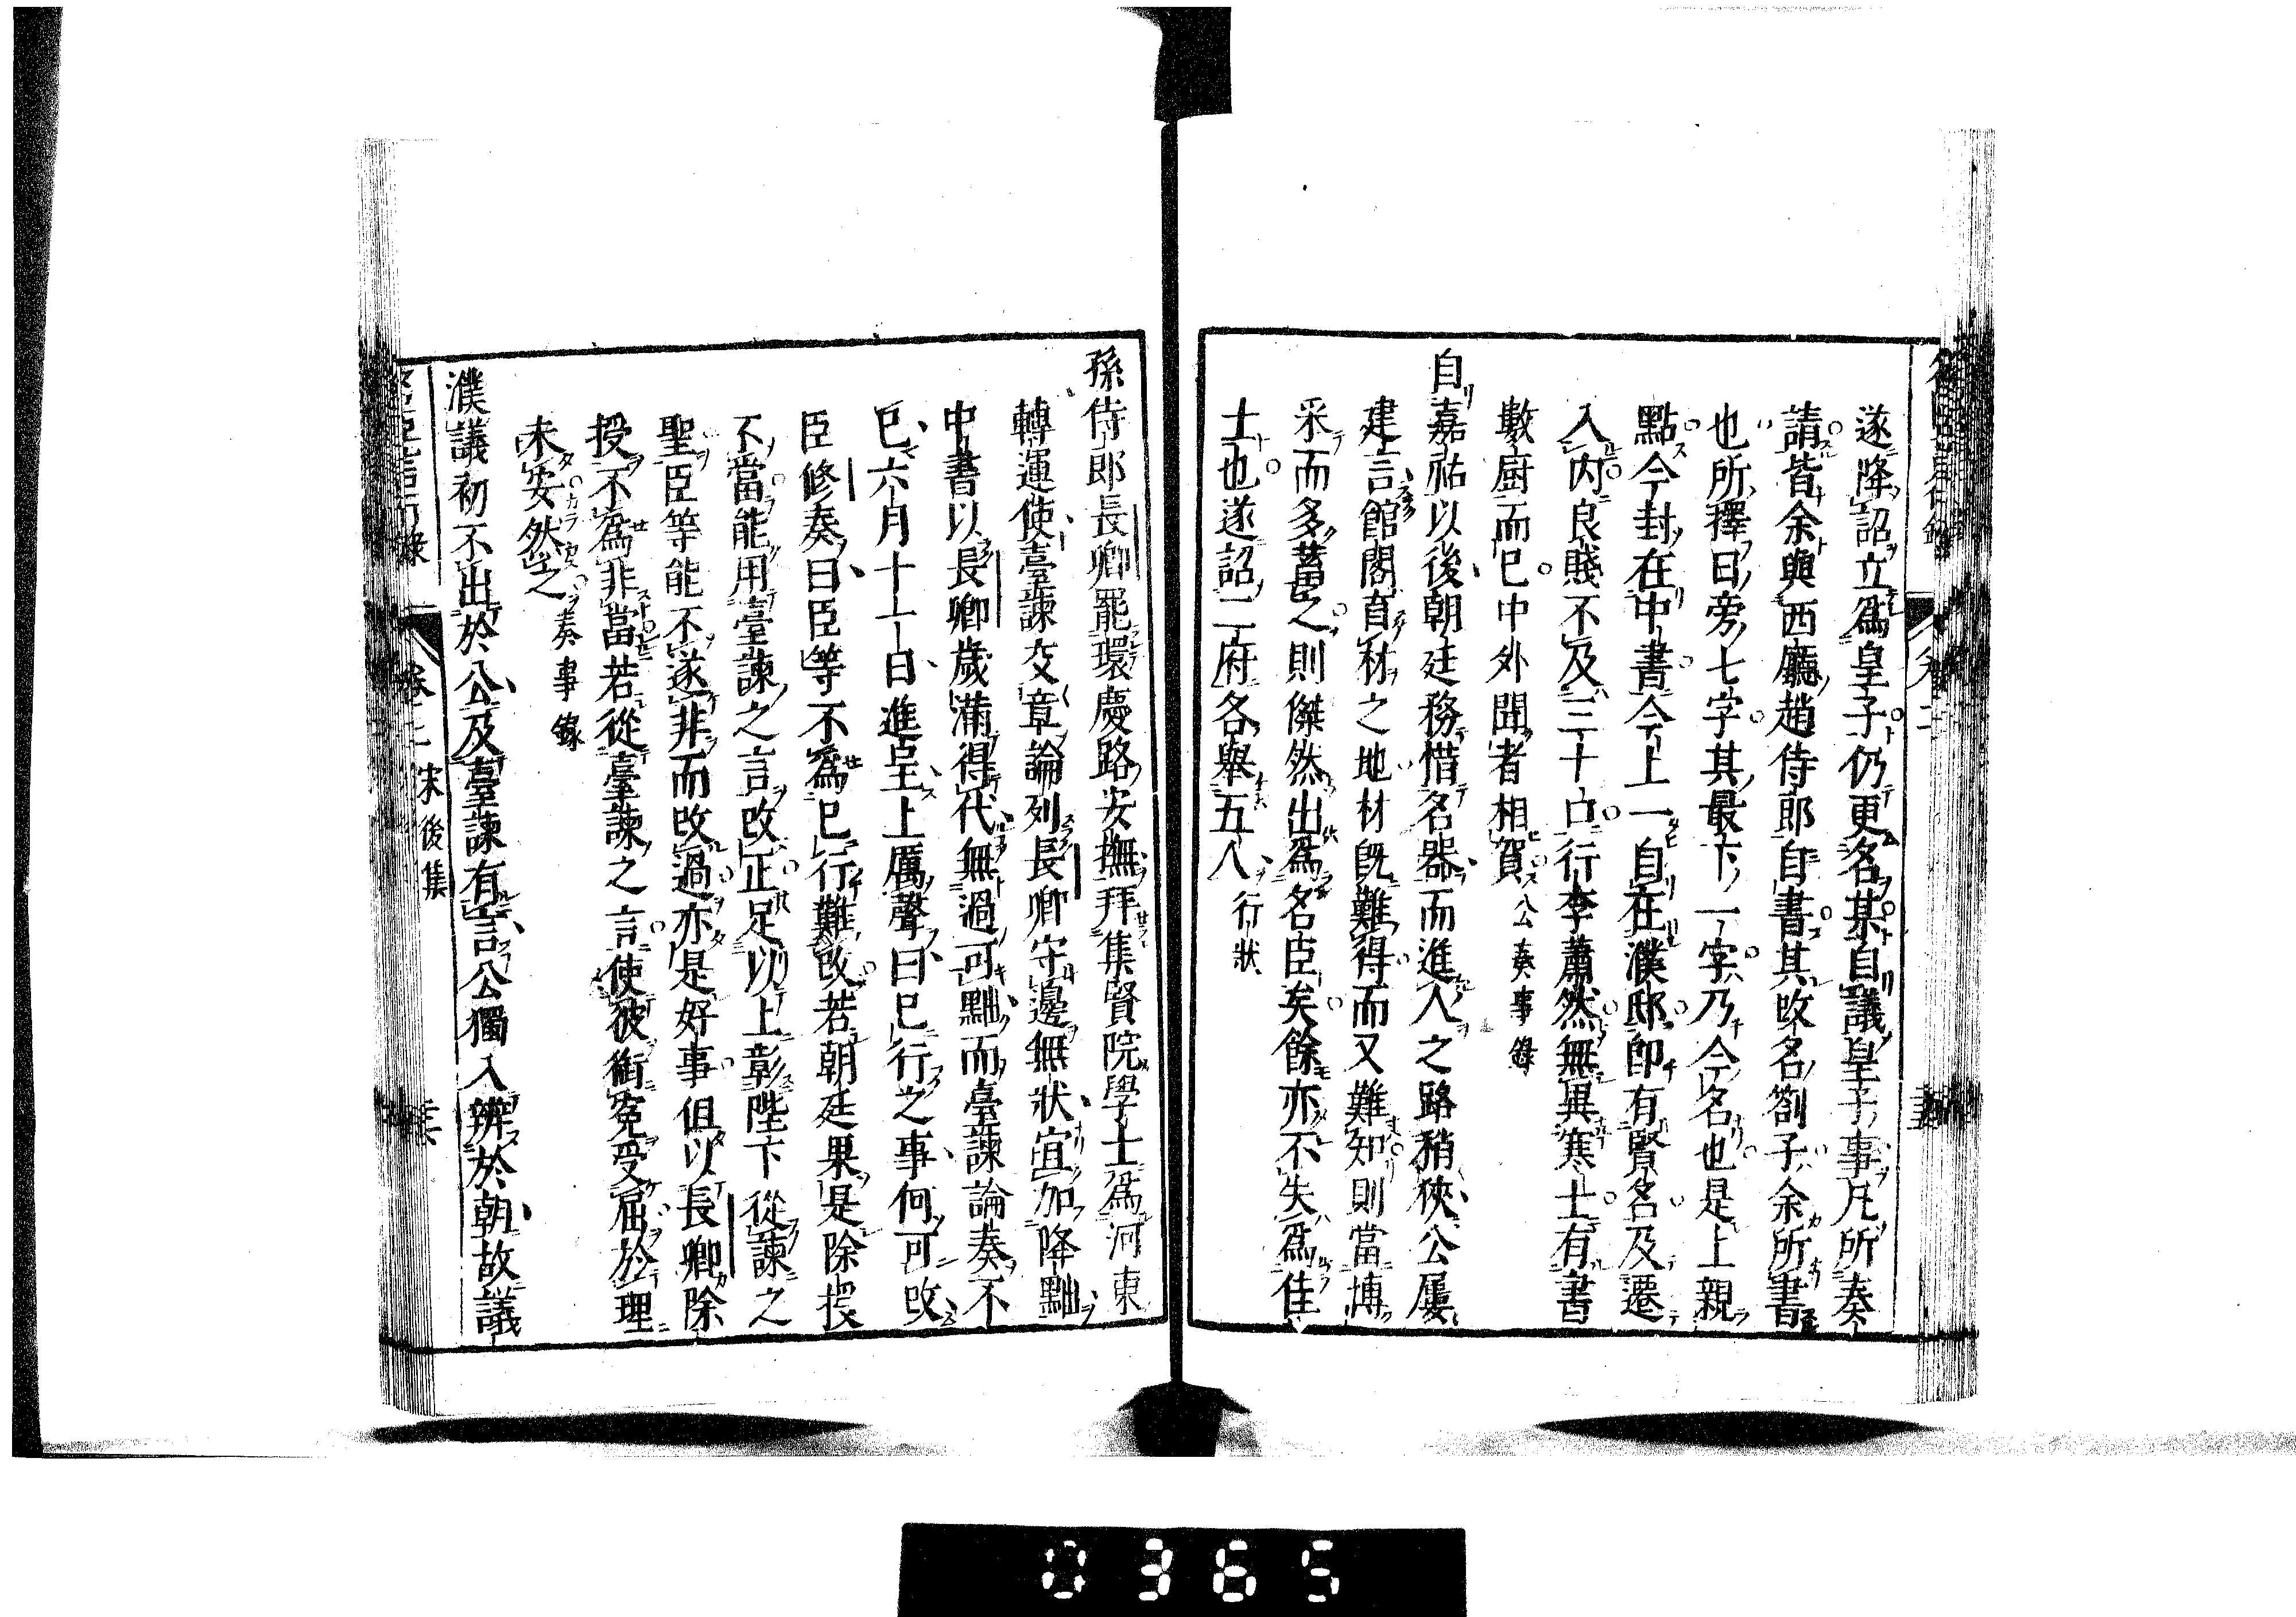 遂降詔立爲皇子仍更名某自議皇子事凡所奏
請皆余與西廳趙侍郎自書其改名劄子余所書
也所擇日旁七字其最下一字乃今名也是上親
點今封在中書今上一自在濮邸即有賢名及遷
入內良賤不及三十口行李蕭然無異寒士有書
數厨而已中外聞者相賀公奏事錄
自嘉祐以後朝廷務惜名器而進人之路稍狹公屢
建言館閣育材之地材旣難得而又難知則當博
采而多蓄之則傑然出爲名臣矣餘亦不失爲佳
士也遂詔二府各舉五人行狀
孫侍郎長卿罷環慶路安撫拜集賢院學士爲河東
轉運使臺諫交章論列長卿守邊無狀宜加降黜
中書以長卿歲滿得代無過可黜而臺諫論奏不
已六月十一日進呈上厲聲曰已行之事何可改
臣修奏曰臣等不爲已行難改若朝廷果是除授
不當能用臺諫之言改正足以上彰陛下從諫之
聖臣等能不遂非而改過亦是好事但以長卿除
授不爲非當若從臺諫之言使彼銜冤受屈於理
未安然之奏事錄
濮議初不出於公及臺諫有言公獨入辨於朝故議
卷二 宋後集
0365